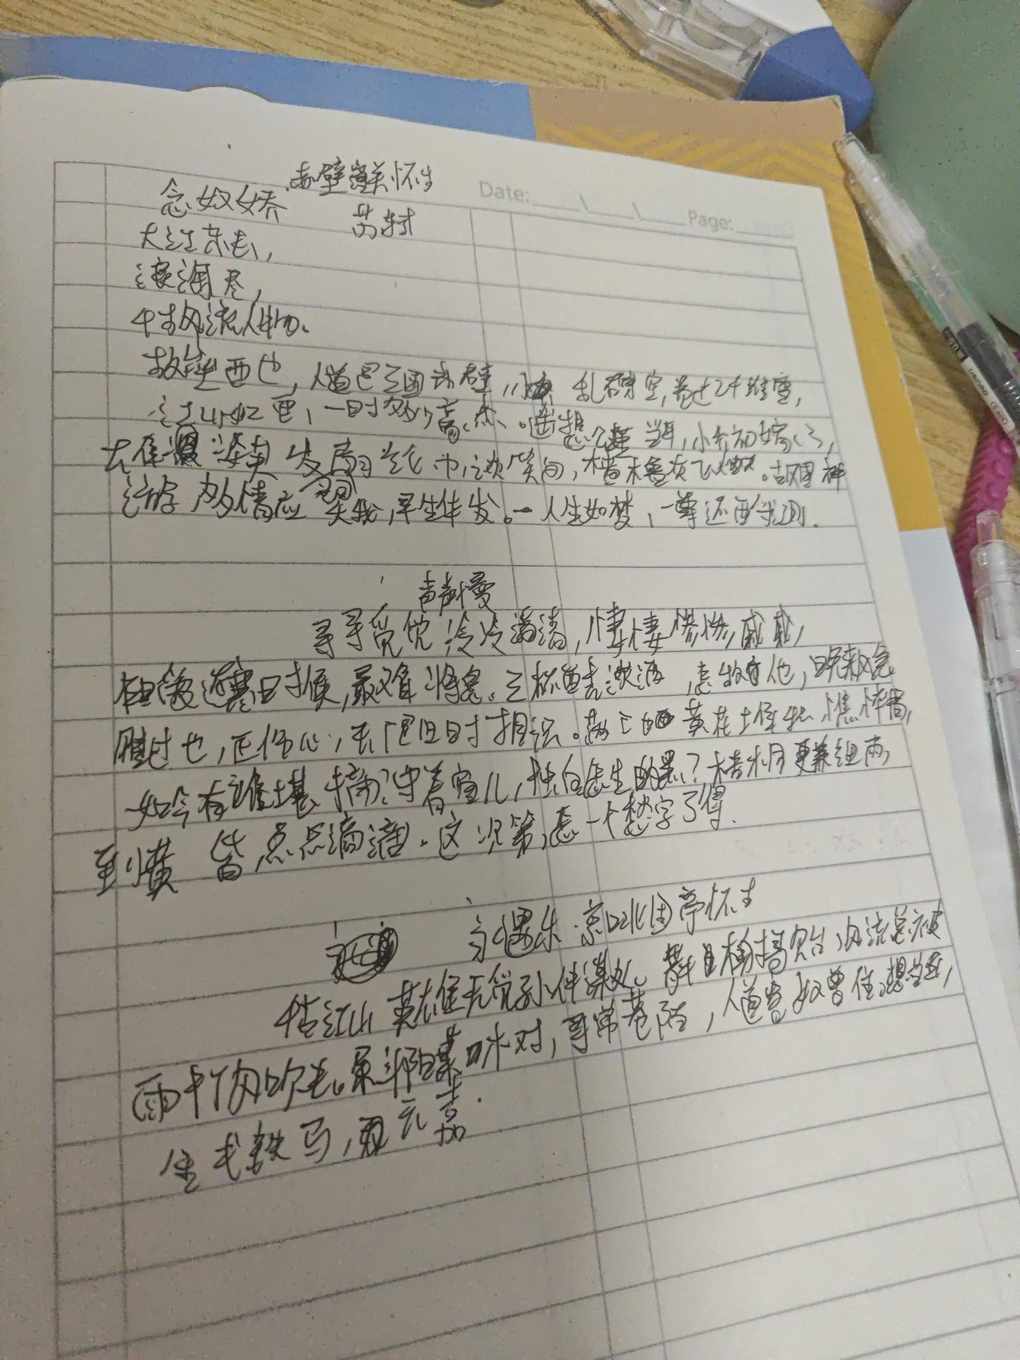 赤壁 怀古
Date: Page:
念奴娇 苏轼
大江东去，
浪淘尽，
千古风流人物、
故垒西边，人道是三国 赤壁， 乱石穿空，卷起千堆雪，
江山如画，一时多少豪杰。遥想公瑾当年，小乔初嫁了，
发 羽 巾，谈笑间，樯橹灰飞烟灭。故国神
游 多情应 笑我，早生华发。一人生如梦，一尊还酹江月.
声声慢
寻寻觅觅 冷冷清清，凄凄惨惨，戚戚，
还寒时候，最难将息。三杯 淡酒，怎 他，晚来风急
过也，正伤心，旧时相识。满地 黄花堆积 憔悴损，
如今有谁堪摘？守着窗儿，独自怎生 黑？梧桐更兼细雨
到黄 点点滴滴。这次第，怎一个愁字了得.
永遇乐·京口北固亭怀古
江山 英雄无觅孙仲谋处。舞 榭 台，风流总被
雨打风吹去。斜阳草 对，寻常巷陌，人道寄奴曾住。想当年，
金戈铁马， 元嘉.